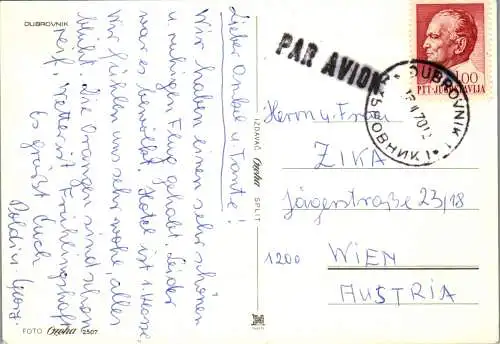 DUBROVNIK
Lieber Onkel u. Tante!
Wir haben einen sehr schönen
u. ruhigen Flug gehabt. Leider
war es bewölkt. Hotel ist 1. Klasse,
Wir fühlen uns sehr wohl, alles
blüht. Die Orangen sind schon
reif, Wetter ist Frühlingshaft
Es grüßt Euch
Poldi u. Georg.
FOTO Croha 2507
IZDAVAČ Croha SPLIT
PAR AVION
DUBROVNIK 1
ДУБРОВНИК 1
70
1.00
PTT-JUGOSLAVIJA
Herrn u. Frau
ZIKA
Jägerstraße 23/18
1200 WIEN
AUSTRIA